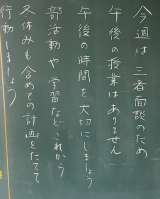 今週は三者面談のため
午後の授業はありません
午後の時間を大切にしましょう
部活動や学習など、これから
冬休みも含めての計画をたてて
行動しましょう